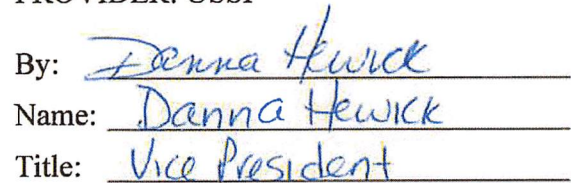 PROVIDER: USSI
By: Danna Hewick
Name: Danna Hewick
Title: Vice President